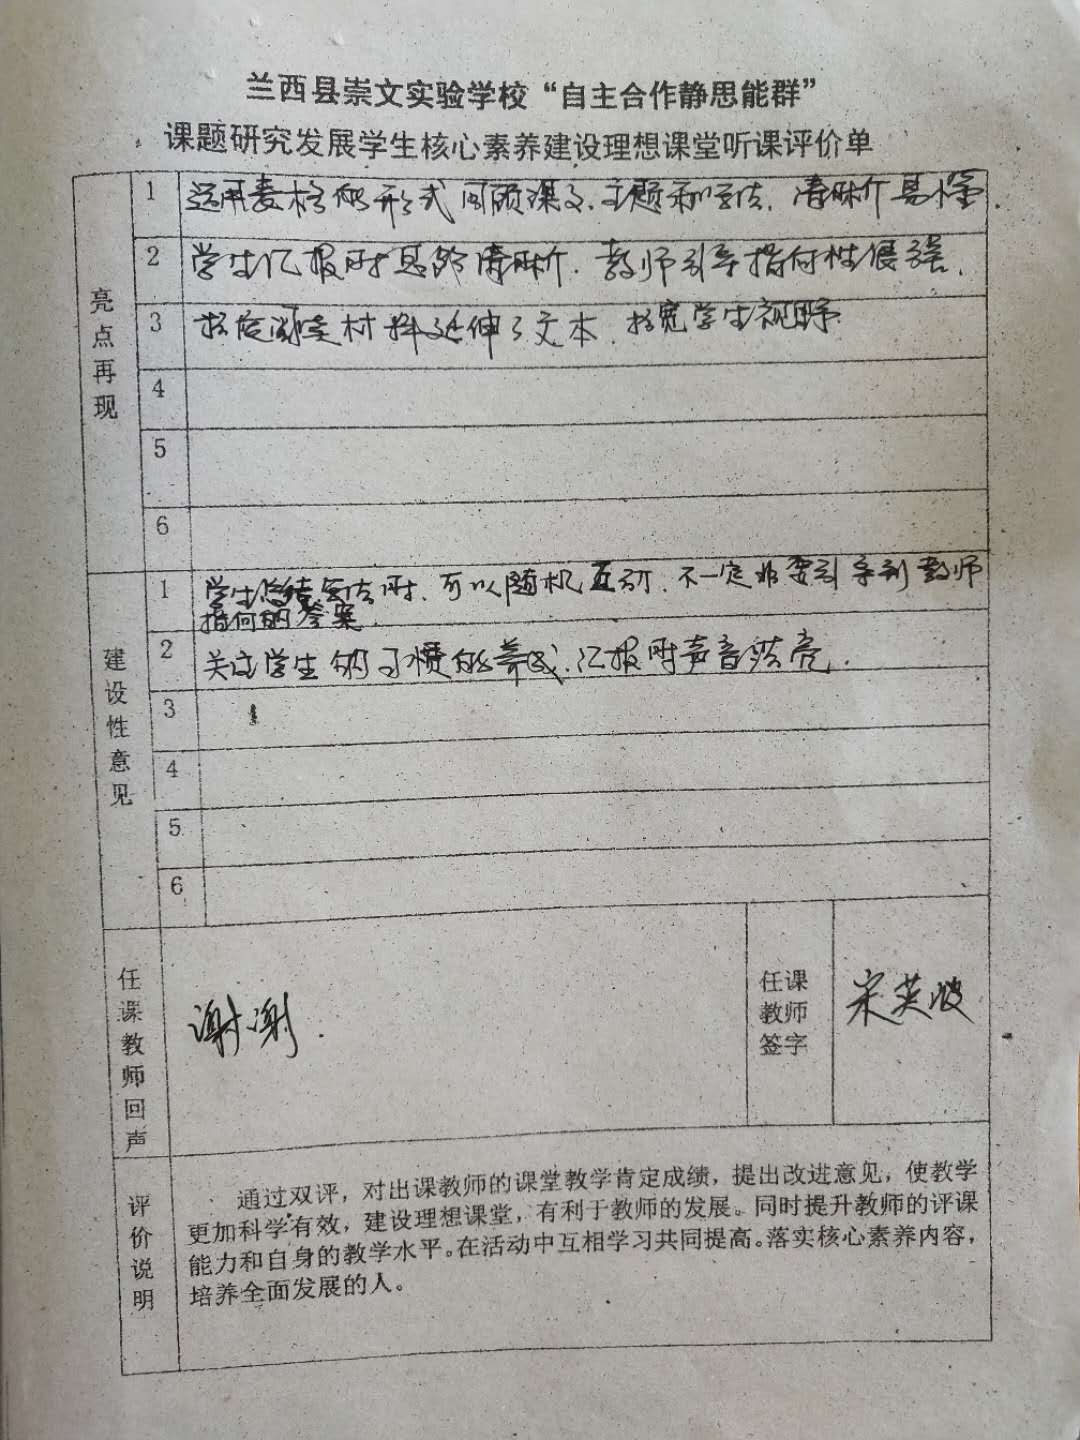 兰西县崇文实验学校“自主合作静思能群”
课题研究发展学生核心素养建设理想课堂听课评价单
亮点再现
1 运用表格的形式回顾课文、主题和写法，清晰介易懂.
2 学生汇报时思路清晰，教师引导指向性很强.
3 材料延伸了文本，拓宽学生视野.
4
5
6
建设性意见
1 学生总结写法时，可以随机互动，不一定非要引导到教师
指向的答案.
2 关注学生的习惯的养成，汇报时声音洪亮.
3
4
5
6
任课教师回声
谢谢.
任课
教师
签字
宋英波
评价说明
通过双评，对出课教师的课堂教学肯定成绩，提出改进意见，使教学
更加科学有效，建设理想课堂，有利于教师的发展。同时提升教师的评课
能力和自身的教学水平。在活动中互相学习共同提高。落实核心素养内容，
培养全面发展的人。